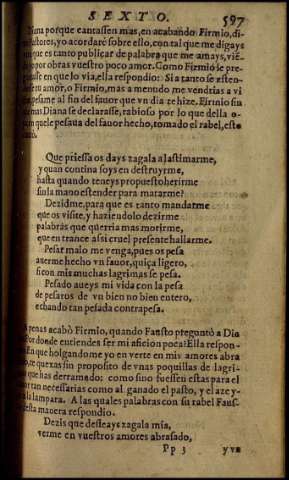 SEXTO. 597
porque cantassen mas, en acabando Firmio, di-
Pastores, yo acordarè sobre ello, con tal que me digays
que es tanto publicar de palabra que me amays, viẽ-
por obras vuestro poco amor. Como Firmio le pre-
en que lo via, ella respondio: Si a tanto se esten-
tu amor, o Firmio, mas a menudo me vendrias a vi
pesame al fin del fauor que vn dia te hize. Firmio sin
mas Diana se declarasse, rabioso por lo que della o-
que le pesaua del fauor hecho, tomado el rabel, esto
Que priessa os days zagala a lastimarme,
y quan contina soys en destruyrme,
hasta quando teneys propuesto herirme
sin la mano estender para matarme?
Dezidme, para que es tanto mandarme
que os visite, y haziendolo dezirme
palabras que querria mas morirme,
que en trance assi cruel presente hallarme.
Pesar malo me venga, pues os pesa
auerme hecho vn fauor, quiça ligero,
si con mis muchas lagrimas se pesa.
Pesado aueys mi vida con la pesa
de pesaros de vn bien no bien entero,
echando tan pesada contrapesa.
Apenas acabò Firmio, quando Fausto preguntò a Dia
por donde entiendes ser mi aficion poca? Ella respon-
que holgandome yo en verte en mis amores abra
te quexas sin proposito de vnas poquillas de lagri-
que has derramado: como sino fuessen estas para el
tan necessarias como al ganado el pasto, y el azey-
lampara. A las quales palabras con su rabel Faus-
desta manera respondio.
Dezis que desseays zagala mia,
verme en vuestros amores abrasado,
Pp 3 y vn